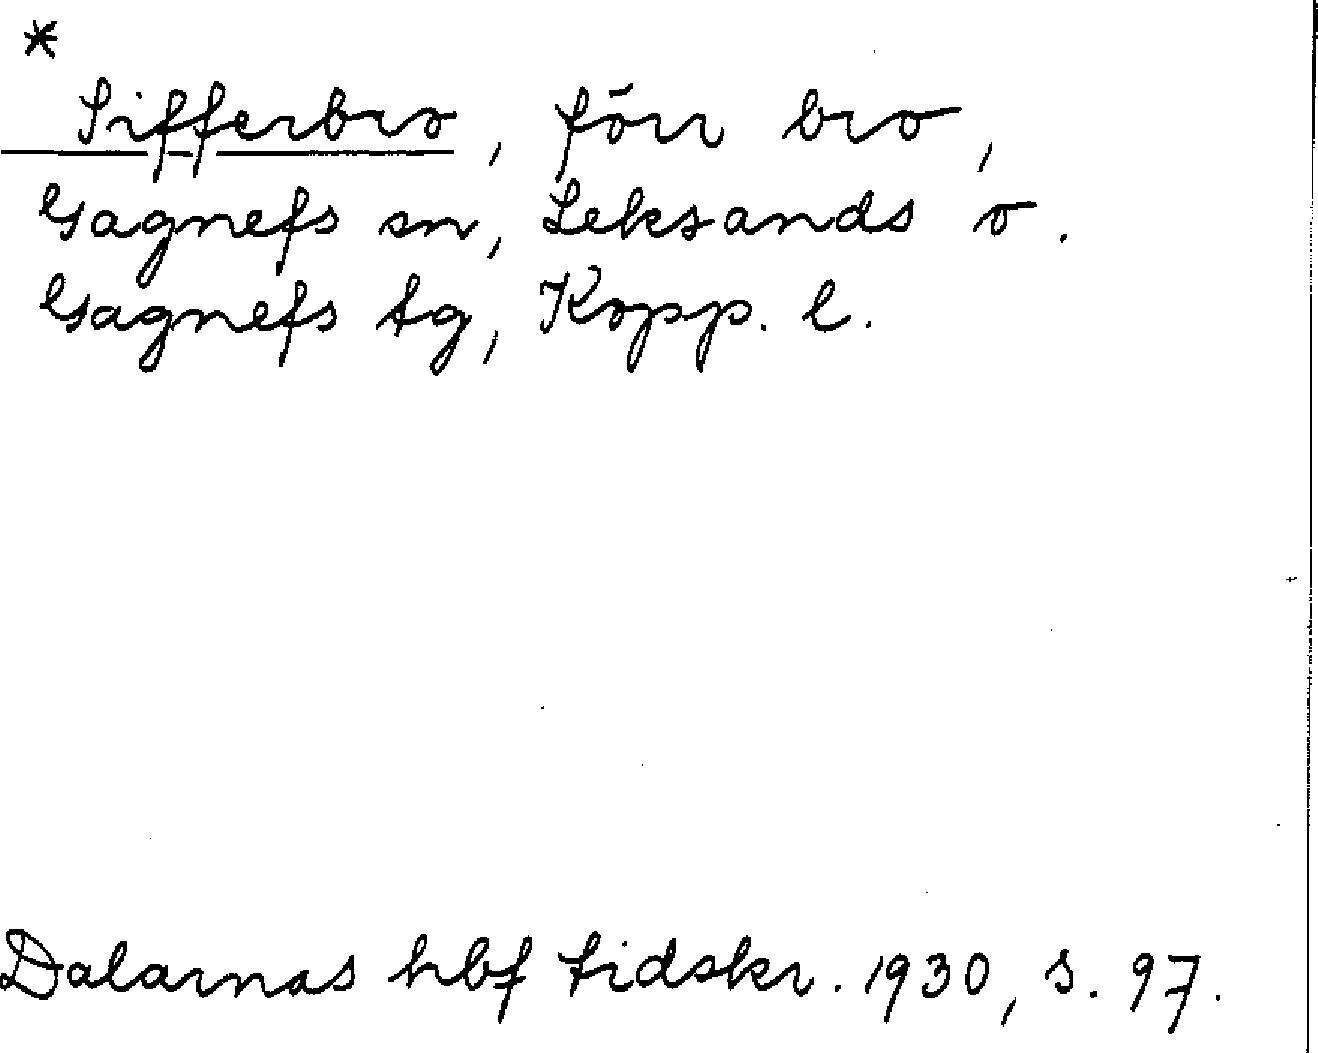 *
Sifferbro, förr bro,
Gagnefs sn, Leksands o.
Gagnefs tg, Kopp. l.
Dalarnas hbf tidskr. 1930, s. 97.